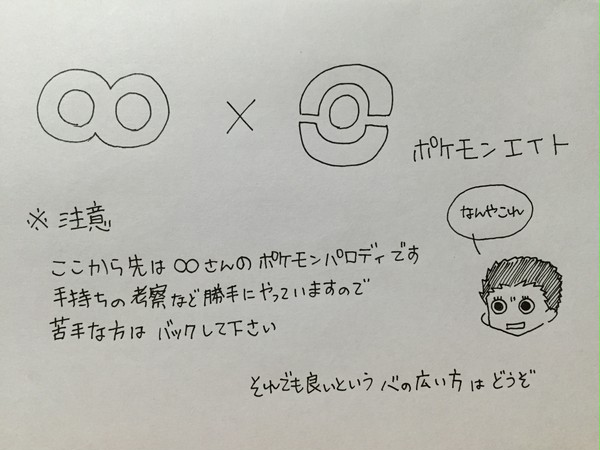 ∞ × ポケモンエイト
※ 注意
なんやこれ
ここから先は ∞さんのポケモンパロディです
手持ちの考察など勝手にやっていますので
苦手な方は バックして下さい
それでも良いという 心の広い方は どうぞ